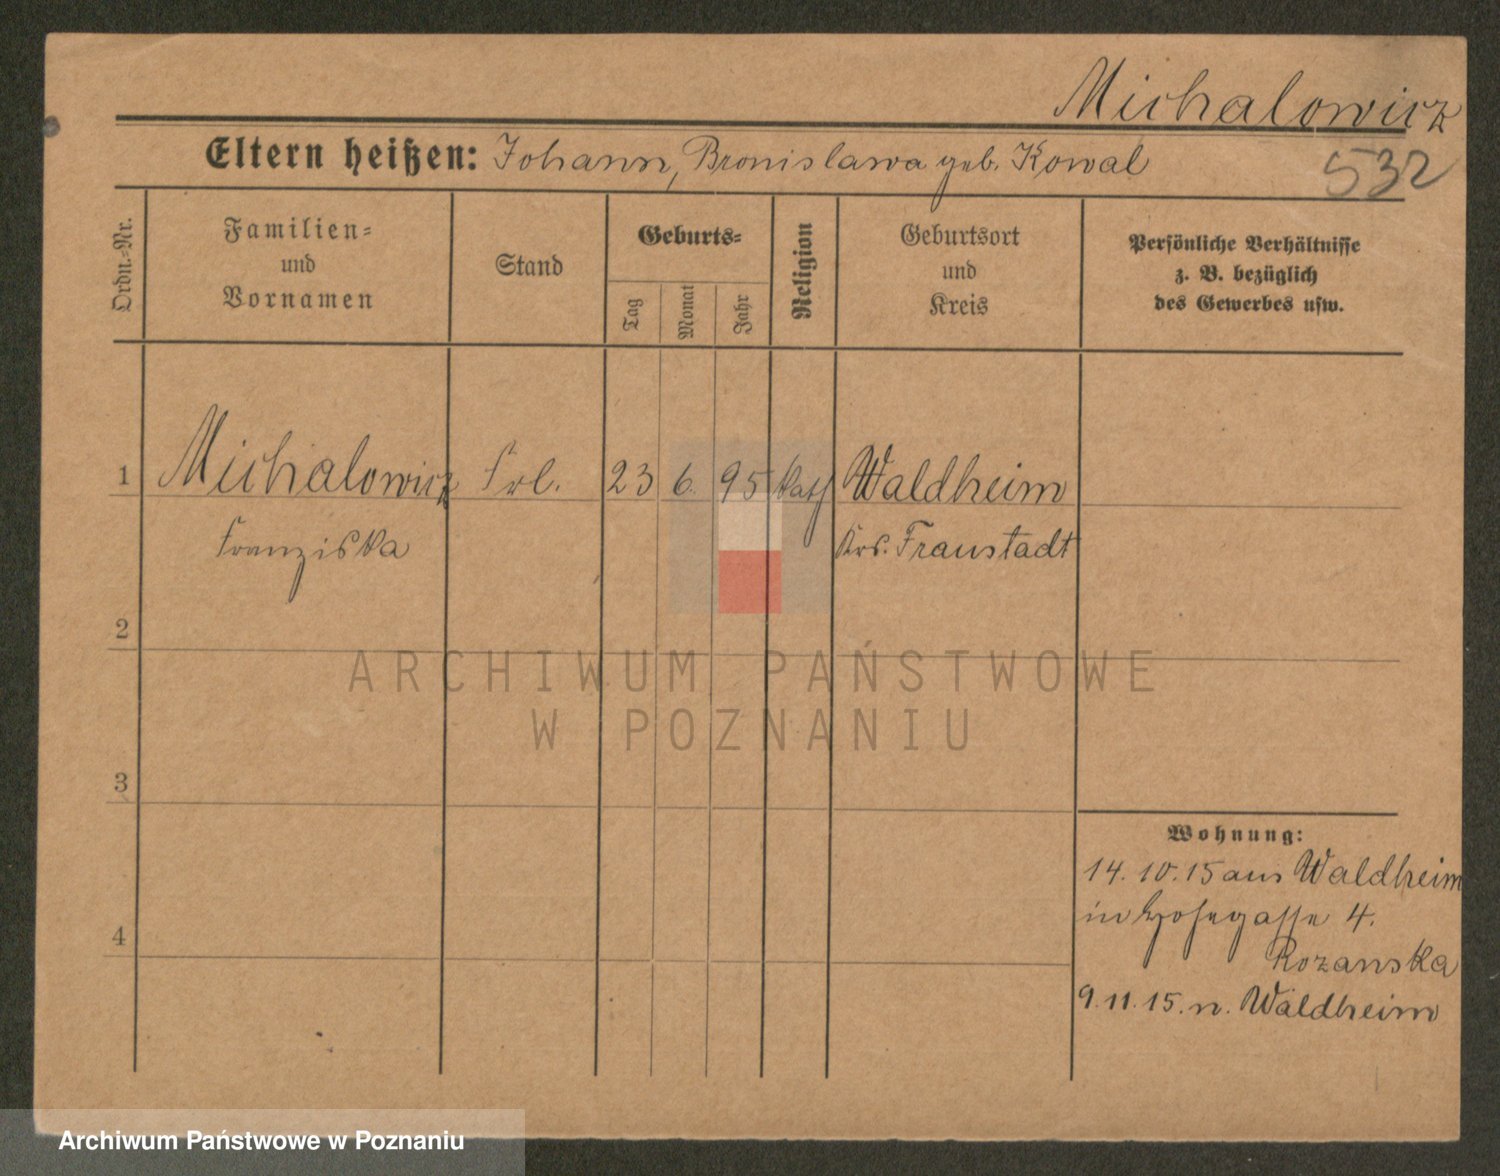 Michalowicz
Eltern heißen: Johann, Bronislawa geb. Kowal
532
Ordn.-Nr.
Familien-
und
Vornamen
Stand
Geburts-
Tag
Monat
Jahr
Religion
Geburtsort
und
Kreis
Persönliche Verhältnisse
z. B. bezüglich
des Gewerbes usw.
1 Michalowicz Frl. 23 6. 95 kath Waldheim
Franziska Krs. Fraustadt
2
3
4
ARCHIWUM PAŃSTWOWE
W POZNANIU
Wohnung:
14.10.15 aus Waldheim
in 4.
Rozanska
9.11.15. n. Waldheim
Archiwum Państwowe w Poznaniu